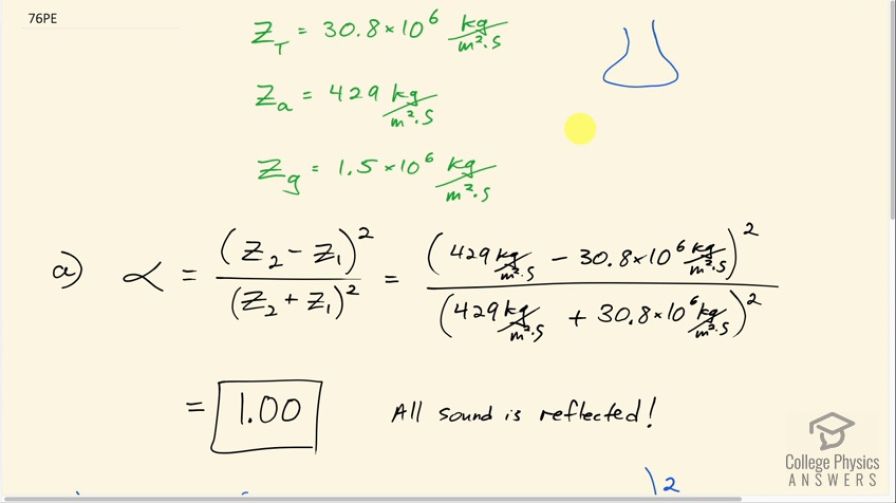 76PE
Z_T = 30.8×10^6 kg/m²·s
Z_a = 429 kg/m²·s
Z_g = 1.5×10^6 kg/m²·s
a) α = (Z_2 − Z_1)^2 / (Z_2 + Z_1)^2 = (429 kg/m²·s − 30.8×10^6 kg/m²·s)^2 / (429 kg/m²·s + 30.8×10^6 kg/m²·s)^2
= 1.00 All sound is reflected!
)2
College Physics
ANSWERS